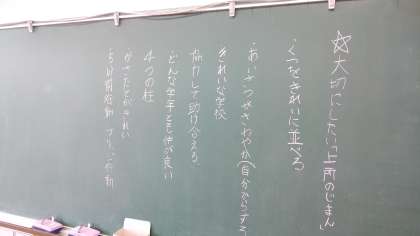 ☆大切にしたい「上所のじまん」
・くつをきれいに並べる
・あいさつがさわやか(自分からする
・きれいな学校
・協力して助け合える
・どんな学年とも仲が良い
・4つの桂
・かさたてがきれい